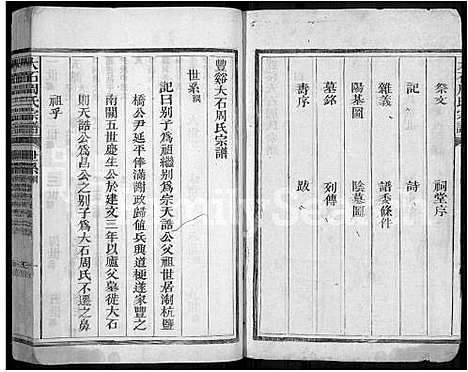 祭文 祠堂序
記 詩
雜義 譜委條件
陽基圖 陰墓圖
墓銘 列傳
壽序 跋
豐谿大石周氏宗譜
世系圖
記曰别子為祖繼别為宗天誥公父祖世居湖杭鹽
橋公尹延平俸滿謝政歸值兵興道梗遂家豐之
南關五世慶生公於建文三年以廬父墓徙大石
則天誥公為昌公之别子為大石周氏不遷之鼻
祖乎
大石周氏宗譜
世系